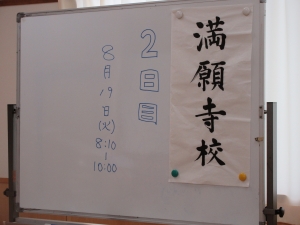 満願寺校
2日目
8月19日(火)8:10-10:00